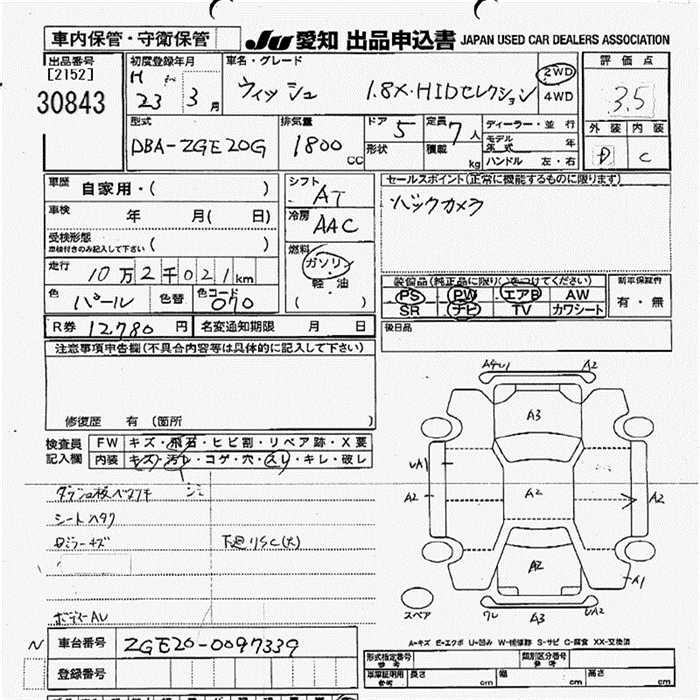 車内保管・守衛保管
JU 愛知 出品申込書 JAPAN USED CAR DEALERS ASSOCIATION
出品番号
[2152]
30843
初度登録年月
H
23 3 月
車名・グレード
ウィッシュ 1.8X・HIDセレクション
2WD
4WD
評価点
3.5
外装 内装
D C
型式
DBA-ZGE20G
排気量
1800 cc
ドア 5
形状
定員 7 人
積載 kg
ディーラー・並行
モデル年式 年
ハンドル 左・右
車歴 自家用・( )
車検 年 月( 日)
受検形態
車検付きのみ記入して下さい ( )
走行 10万2千021km
色 パール 色替 色コード 070
R券 12,780 円 名変通知期限 月 日
シフト
AT
冷房
AAC
燃料
ガソリン
軽・油
( )
セールスポイント(正常に機能するものに限ります)
バックカメラ
装備品(純正品に限り○をつけてください)
PS PW エアB AW
SR ナビ TV カワシート
新車保証書
有・無
後日品
注意事項申告欄(不具合内容等は具体的に記入して下さい)
修復歴 有 (箇所 )
検査員
記入欄
FW キズ・飛石・ヒビ割・リペア跡・X要
内装 キズ・汚レ・コゲ・穴・スレ・キレ・破レ
シミ
シートハタク
下廻りSC(大)
ボディーAU
N
車台番号 ZGE20-0097339
登録番号
A4U1 A2
A3
UA1
A2 A2 A2
A2
A1
スペア
ワレ A3 UA2
A-キズ E-エクボ U-凹み W-補修跡 S-サビ C-腐食 XX-交換済
形式指定番号
参考
類別区分番号
参考
車庫証明用
参考
長さ cm 幅 cm 高さ cm